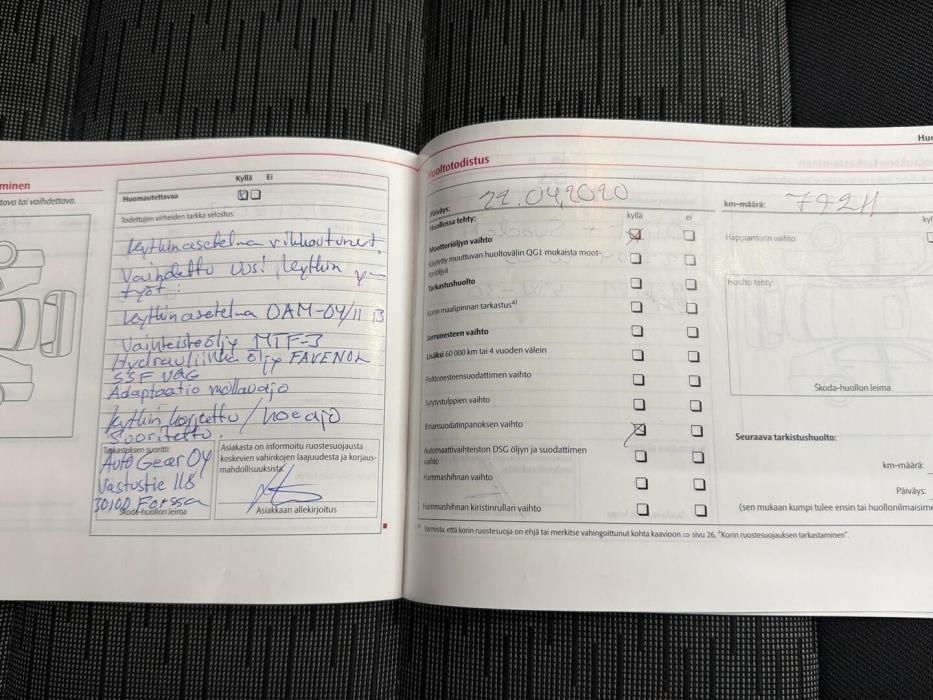 minen
tava tai vaihdettava.
Kyllä Ei
Huomautettavaa
Todettujen virheiden tarkka selostus:
kytkinasetelma vikkoutunert
Vaihdettu uusi, kytkin
työt:
kytkinasetelma OAM-04/11 B
Vaihteistoöljy MTF-3
Hydrauliikka öljy FAVENOL
SSF VAG
Adaptaatio nollaudjo
kytkin korjattu / koeajo
Suoritettu.
Tarkastuksen suoritti:
Auto Gear OY
Vastostie 118
30100 Forssa
Skoda-huollon leima
Asiakasta on informoitu ruostesuojausta
koskevien vahinkojen laajuudesta ja korjaus-
mahdollisuuksista:
Asiakkaan allekirjoitus
Huoltotodistus
Päiväys: 22.04.2020
Huollossa tehty:
kyllä ei
Moottoriöljyn vaihto
Käytetty muuttuvan huoltovälin QG1 mukaista moot-
toriöljyä
Tarkastushuolto
Korin maalipinnan tarkastus a)
Jarrunesteen vaihto
Lisäksi 60 000 km tai 4 vuoden välein
Polttonesteensuodattimen vaihto
Sytytystulppien vaihto
Ilmansuodatinpanoksen vaihto
Automaattivaihteiston DSG öljyn ja suodattimen
vaihto
Hammashihnan vaihto
Hammashihnan kiristinrullan vaihto
a) Varmista, että korin ruostesuoja on ehjä tai merkitse vahingoittunut kohta kaavioon ⇒ sivu 26, "Korin ruostesuojauksen tarkastaminen".
km-määrä:
Happianturin vaihto
Huolto tehty:
Skoda-huollon leima
Seuraava tarkistushuolto:
km-määrä:
Päiväys:
(sen mukaan kumpi tulee ensin tai huollonilmaisime